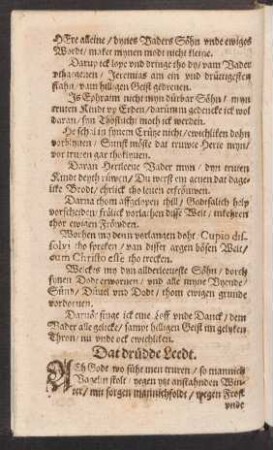 HEre alleine / dynes Vaders Söhn vnde ewiges
Worde / maket mynen modt nicht kleine.
Darup ick lope vnd dringe tho dy / vam Vader
Jeremias am ein vnd
stahn / vam hilligen Geist gedreuen.
Js Ephraim nicht myn dürbar Söhn / myn
truten Kindt vp Erden / darümm gedencke ick wol
daran / syn Tröstlicht moth ick werden.
He schal in synem Crütze nicht / ewichliken dohn
vorbliuen / Sunst möste dat truwe Herte myn /
vor truren gar
Daran Herlieue Vader myn / dyn truten
Kindt deyth / Du werst en geuen dat dage-
like Brodt / ehrlick tho leuen
Darna thom affgelopen thyll / Godtsalich help
vorscheiden / frölick vorlathen disse Welt / inkehren
thor ewigen Fröwden.
Wor hen my denn vorlangen doht / Cupio dis-
solvi tho spreken / van disser argen bösen Welt /
cum Christo esse tho
Welckes my dyn allderleueste Söhn / dorch
synen Dodt erworuen / vnd alle myne Vyende /
Sünd / Düuel vnd Dodt / thom ewigen grunde
vordoruen.
Darnö / singe ick eine Loff vnde Danck / dem
Vader alle gelicke / sampt hilligen Geist im gelyken
Thron / nu vnde ock ewichliken.
Dat drüdde Leedt.
ACh Godt wo süht men truren / so mannich
Vagelin stolt / yegen den anstahnden Win-
ter / mit sorgen mannichfoldt / yegen Frost
vnde